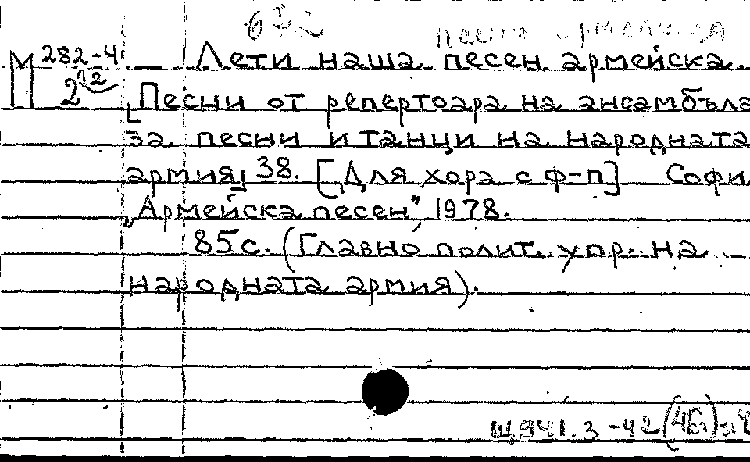 М 282-4
2
Лети наша песен армейска.
[Песни от репертоара на ансамбъла
за песни и танци на народната
армия] 38. [Для хора с ф-п] Софи
„Армейска песен", 1978.
85с. (Главно полит. упр. на
народната армия).
Щ941.3-42(4Б)